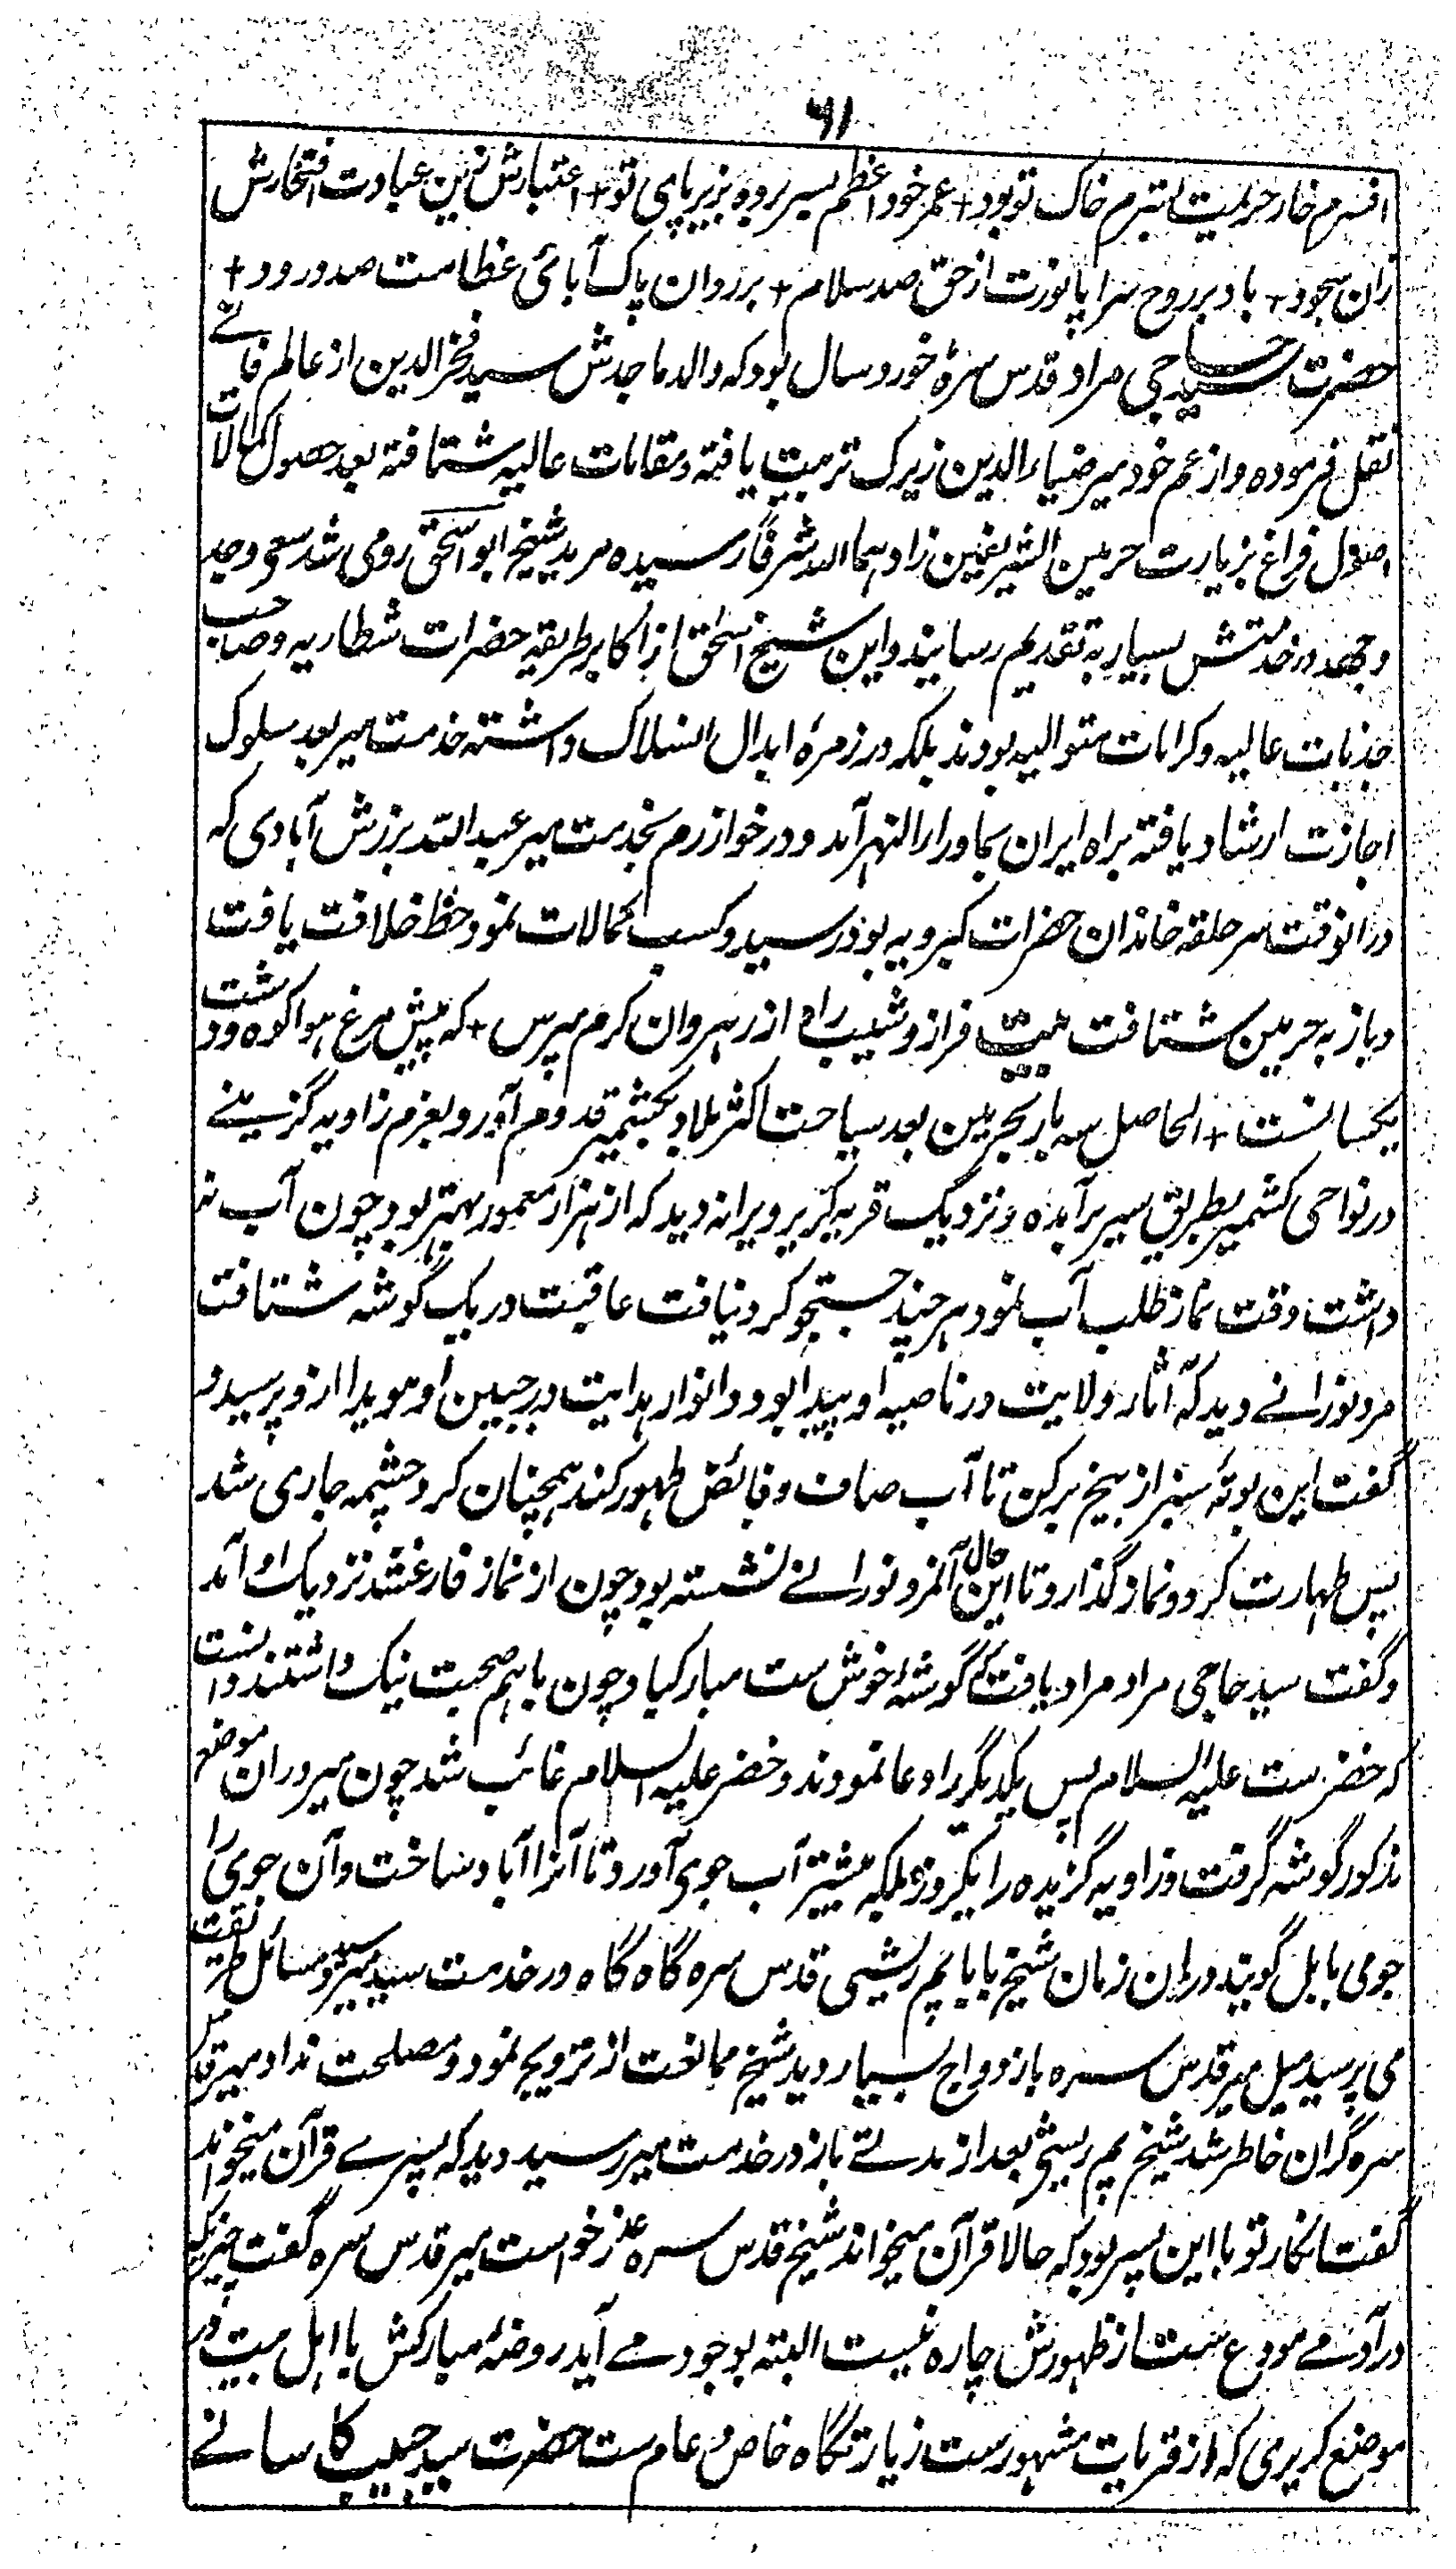 ۶۱
افسرم خار حریمت بسترم خاک تو بود + عمر خود اعظم بسر برده بزیر پای تو + اعتبارش زین عبادت افتخارش
زان سجود + باد بر روح سراپا نورت از حق صد سلام + بر روان پاک آبائی عظامت صد درود +
حضرت سید حاجی مراد قدس سرهٗ خورد سال بود که والد ماجدش سید فخر الدین از عالم فانے
نقل فرموده و از عم خود میر ضیاء الدین زیرک تربیت یافته و مقامات عالیه شتافته بعد حصول کمالات
اصول فراغ بزیارت حرمین الشریفین زادهما الله شرفًا رسیده مرید شیخ ابو اسحٰق رومی شد سعی و جد
و جهد در خدمتش بسیار به تقدیم رسانید و این شیخ اسحٰق از اکابر طریقه حضرات شطاریه و صاحب
جذبات عالیه و کرامات متوالیه بودند بلکه در زمرهٔ ابدال انسلاک داشته خدمت میر بعد سلوک
اجازت ارشاد یافته براه ایران بماوراء النهر آمد و در خوارزم بخدمت میر عبد الله برزش آبادی که
در انوقت سر حلقه خاندان حضرات کبرویه بود رسید و کسب کمالات نمود حظ خلافت یافت
و باز به حرمین شتافت بیت فراز و شیب راه از رهروان کرم مپرس + که پیش مرغ هوا کوه و دشت
یکسانست + الحاصل سه بار بحرمین بعد سیاحت اکثر بلاد بکشمیر قدوم آورد و بعزم زاویه گزینے
در نواحی کشمیر بطریق سیر برآمده و نزدیک قریه کریر ویرانه دید که از هزار معموره بهتر بود چون آب نه
داشت وقت نماز طلب آب نمود هر چند جستجو کرد نیافت عاقبت در یک گوشه شتافت
مرد نورانے دید که آثار ولایت در ناصیه او پیدا بود و انوار هدایت در جبین او هویدا ازو پرسید و
گفت این بوتهٔ سبز از بیخ برکن تا آب صاف و فائض ظهور کند همچنان کرد چشمه جاری شد
پس طهارت کرد و نماز گذارد تا این حال آنمرد نورانے نشسته بود چون از نماز فارغ شد نزدیک او آمد
و گفت سید حاجی مراد مراد یافت که گوشهٔ خوش ست مبارکباد چون باهم صحبت نیک داشتند دانست
که خضرست علیه السلام پس یکدیگر را دعا نمودند و خضر علیه السلام غائب شد چون میر دران موضع
مذکور گوشه گرفت و زاویه گزیده را یکروز بلکه بیشتر آب جوی آورد تا آنرا آباد ساخت و آن جوی را
جوی بابل گویند دران زمان شیخ بابا پم ریشی قدس سره گاه گاه در خدمت سید میرسید و مسائل طریقت
می پرسید میل میر قدس سره بازدواج بسیار دید شیخ ممانعت از تزویج نمود و مصلحت نداد میر قدس
سره گران خاطر شد شیخ پم ریشی بعد از مدتے باز در خدمت میر رسید دید که پسرے قرآن میخواند
گفت انکار تو با این پسر بود که حالا قرآن میخواند شیخ قدس سره عذر خواست میر قدس سره گفت چیزیکه
در آدمے مودع ست از ظهورش چاره نیست البته بوجود مے آید روضهٔ مبارکش با اهل بیت در
موضع کریری که از قریات مشهورست زیارتگاه خاص و عام ست حضرت سید حبیب کاسانے